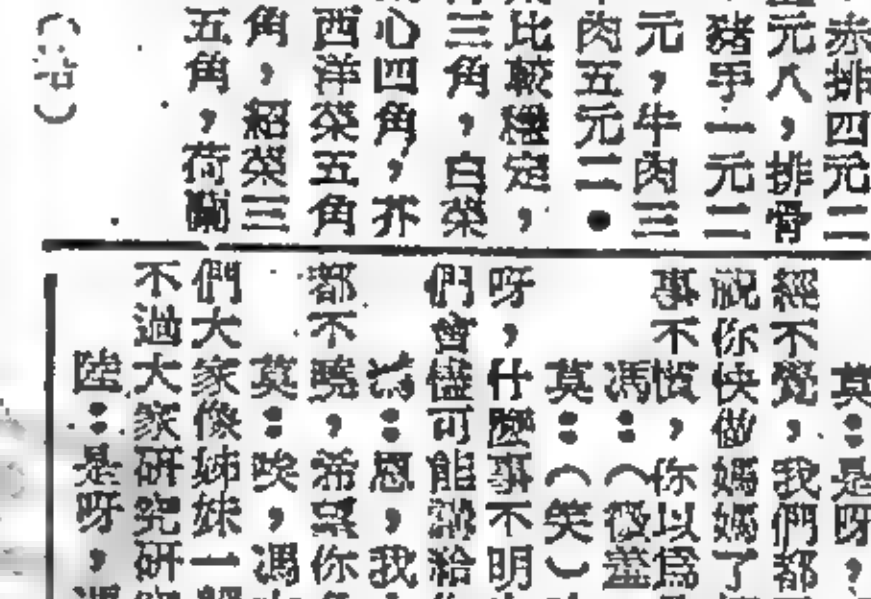 赤排四元二
元八，排骨
豬手一元二
元，牛肉三
肉五元二●
比較穩定，
三角，白菜
心四角，芥
西洋菜五角
角，紹菜三
五角，荷蘭
莫：是呀，
經不覺，我們都
祝你快做媽媽了
事不懂，你以爲
馮：（微羞
莫：（笑）
呀，什麼事不明
們會儘可能
：恩，我
都不曉，希望你
莫：唉，馮
們大家像姊妹一
不過大家研究研
陸：是呀，